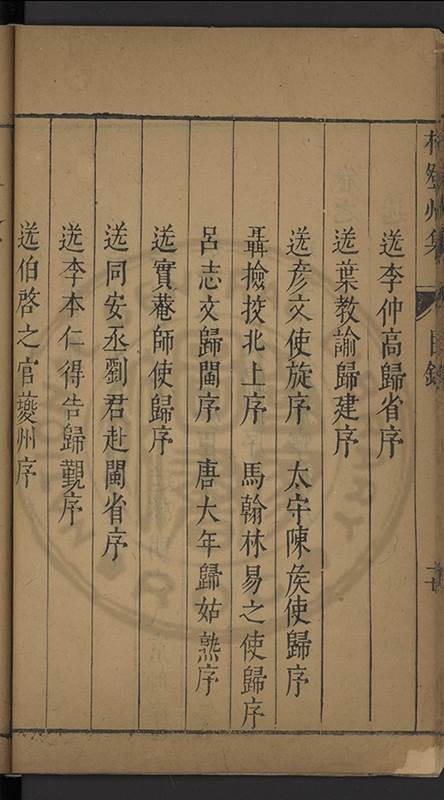 林登州集 目錄
送李仲高歸省序
送葉教諭歸建序
送彥文使旋序 太守陳矦使歸序
聶撿挍北上序 馬翰林易之使歸序
呂志文歸閩序 唐大年歸姑熟序
送實菴師使歸序
送同安丞劉君赴閩省序
送李本仁得告歸覲序
送伯啓之官夔州序